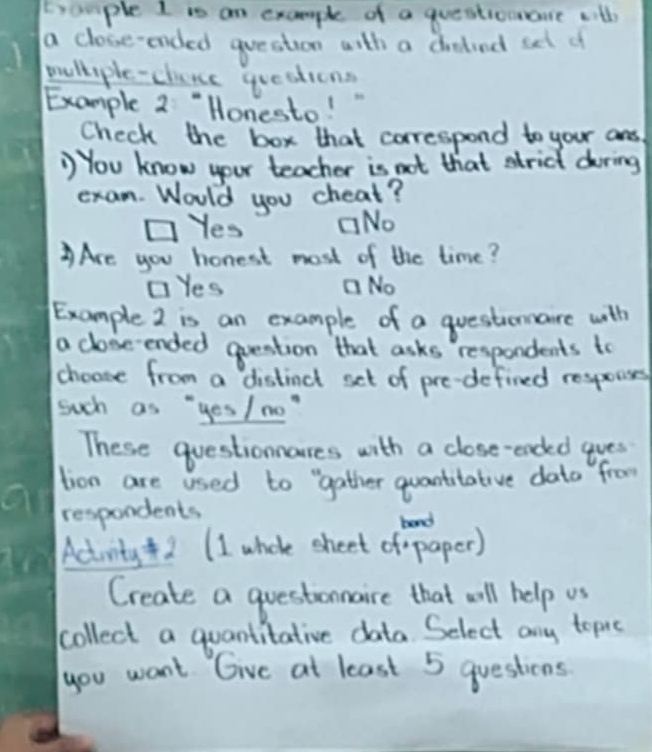 Example 1 is an example of a questionnaire with
a close-ended question with a distinct set of
multiple-choice questions
Example 2: "Honesto!"
Check the box that correspond to your ans.
1) You know your teacher is not that strict during
exam. Would you cheat?
☐ Yes ☐ No
2) Are you honest most of the time?
☐ Yes ☐ No
Example 2 is an example of a questionnaire with
a close-ended question that asks respondents to
choose from a distinct set of pre-defined responses
such as "yes/no"
These questionnaires with a close-ended ques-
tion are used to "gather quantitative data" from
respondents.
Activity #2 (1 whole sheet of bond paper)
Create a questionnaire that will help us
collect a quantitative data. Select any topic
you want. Give at least 5 questions.